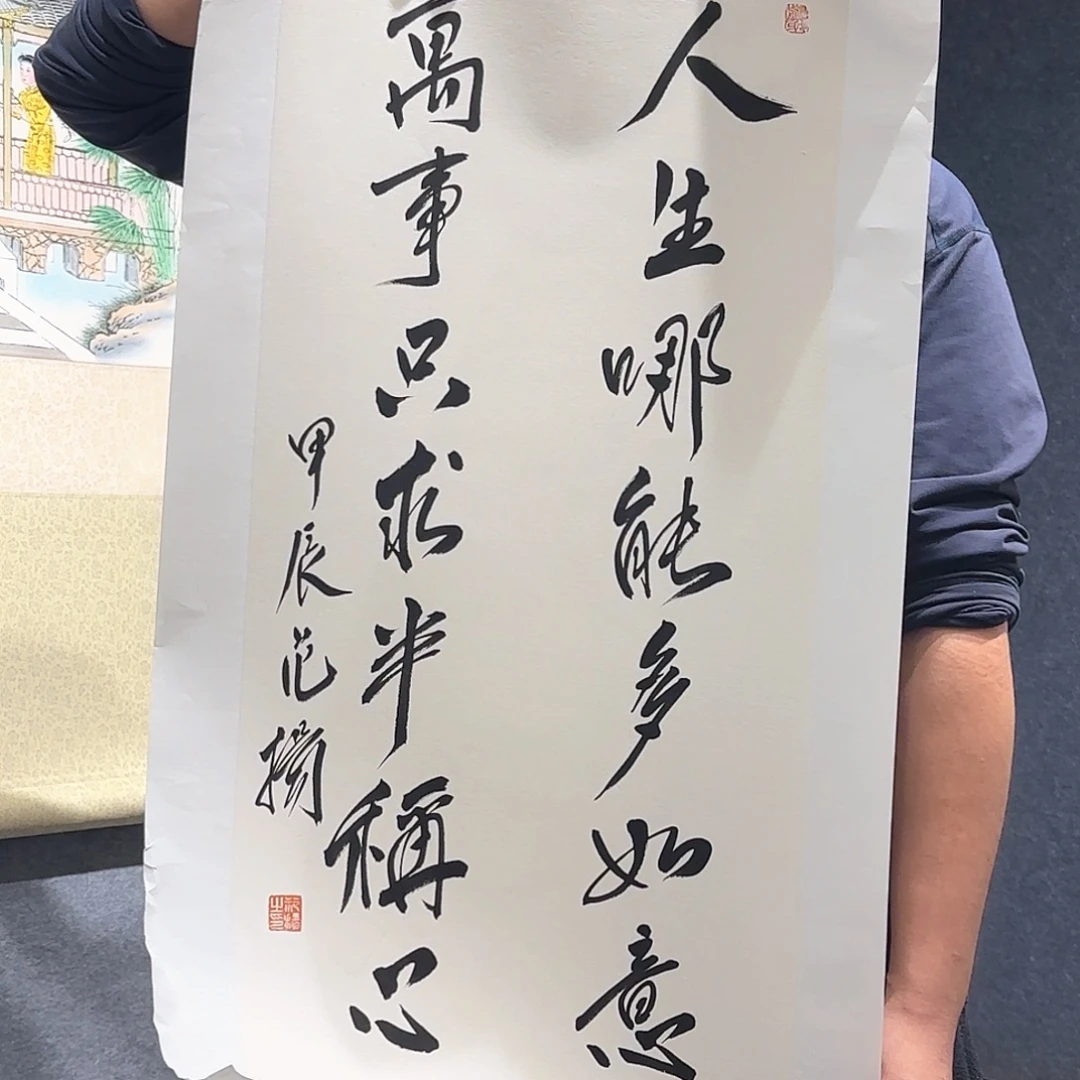 人生哪能多如意
萬事只求半稱心
甲辰范